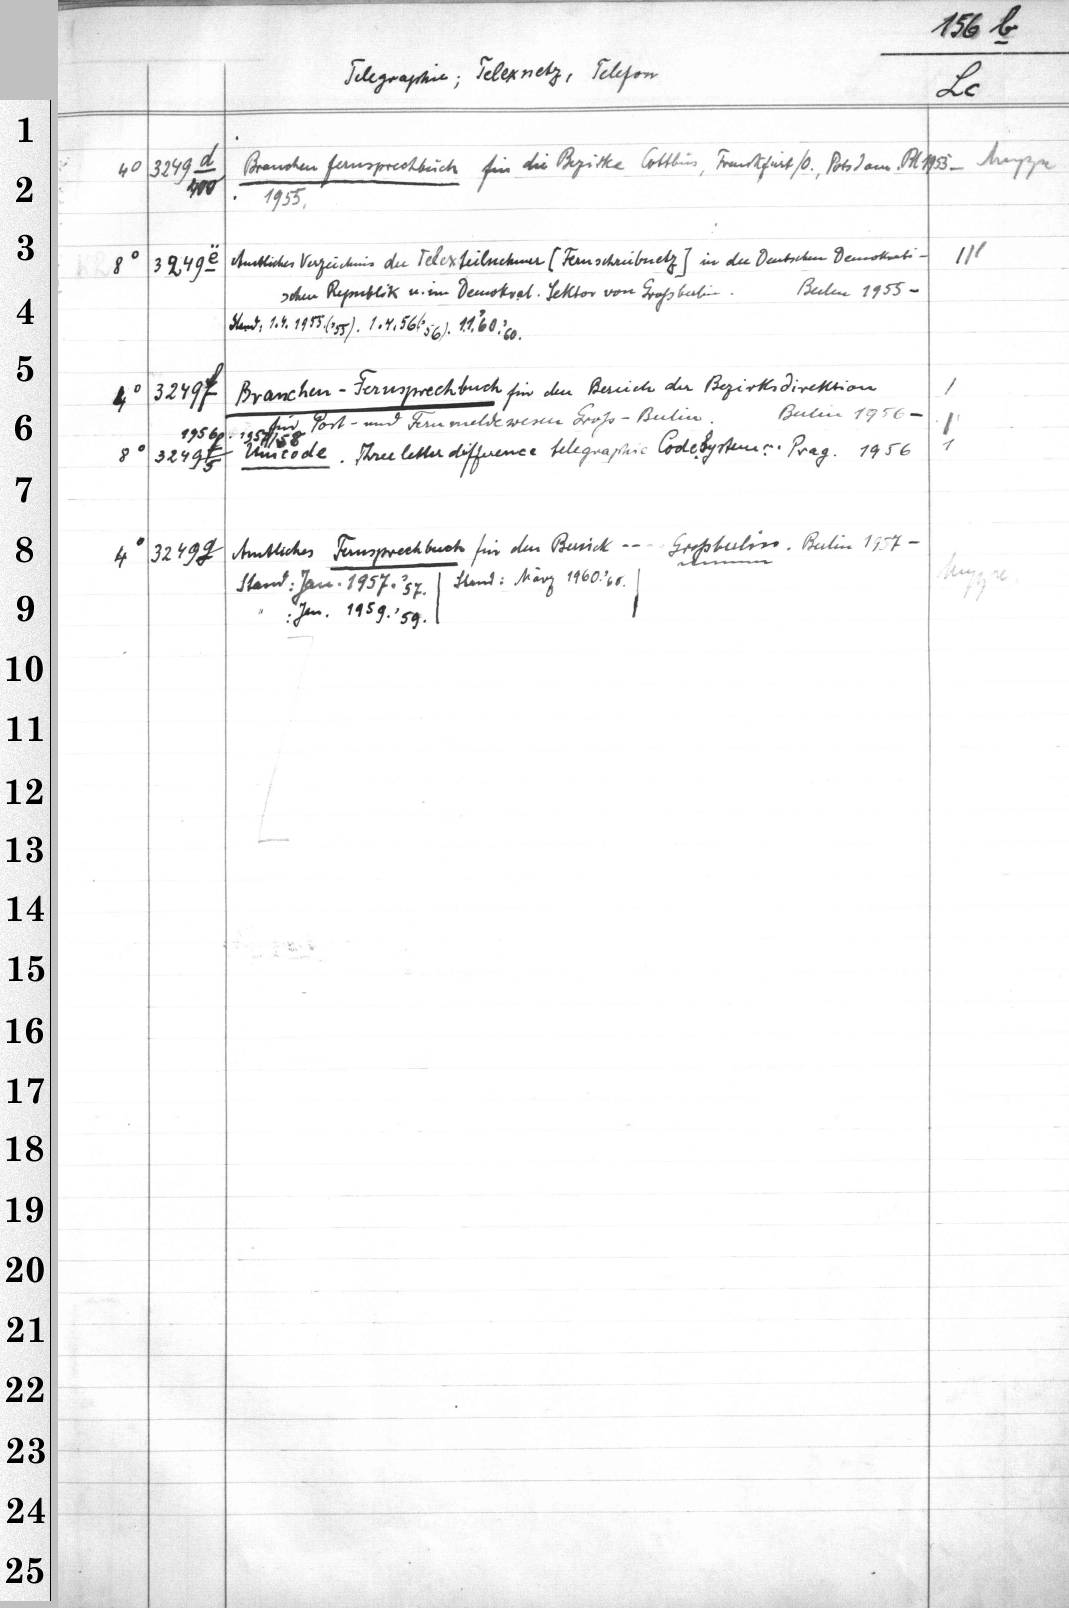 156 b
Lc
Telegraphie; Telexnetz, Telefon
4° 3249 d/400 Branchen fernsprechbuch für die Bezirke Cottbus, Frankfurt/O., Potsdam. 1955- Mappe
1955.
8° 3249 e Amtliches Verzeichnis der Telexteilnehmer [Fernschreibnetz] in der Deutschen Demokrati- III
schen Republik u. im Demokrat. Sektor von Großberlin. Berlin 1955-
Stand: 1.4. 1955.('55). 1.4.56('56). 1.1.'60.'60.
4° 3249 f Branchen-Fernsprechbuch für den Bereich der Bezirksdirektion I
für Post- und Fernmeldewesen Groß-Berlin. Berlin 1956- I
1956. 1957/58
8° 3249 f/5 Unicode. Three letter difference telegraphic Code System. Prag. 1956 1
4° 3249 g Amtliches Fernsprechbuch für den Bezirk --- Großberlin. Berlin 1957-
Stand: Jan. 1957.'57. Stand: März 1960.'60. Mappe
" : Jan. 1959.'59.
1
2
3
4
5
6
7
8
9
10
11
12
13
14
15
16
17
18
19
20
21
22
23
24
25